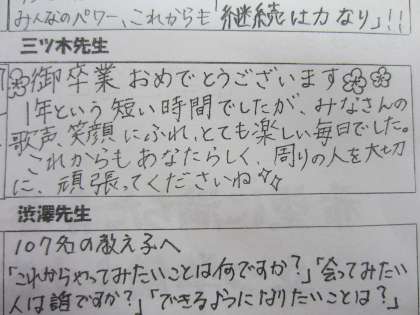 みんなのパワー、これからも「継続は力なり」!!
三ツ木先生
御卒業おめでとうございます
1年という短い時間でしたが、みなさんの
歌声、笑顔にふれ、とても楽しい毎日でした。
これからもあなたらしく、周りの人を大切
に、頑張ってくださいね☆☆
渋澤先生
107名の教え子へ
「これからやってみたいことは何ですか?」「会ってみたい
人は誰ですか?」「できるようになりたいことは?」